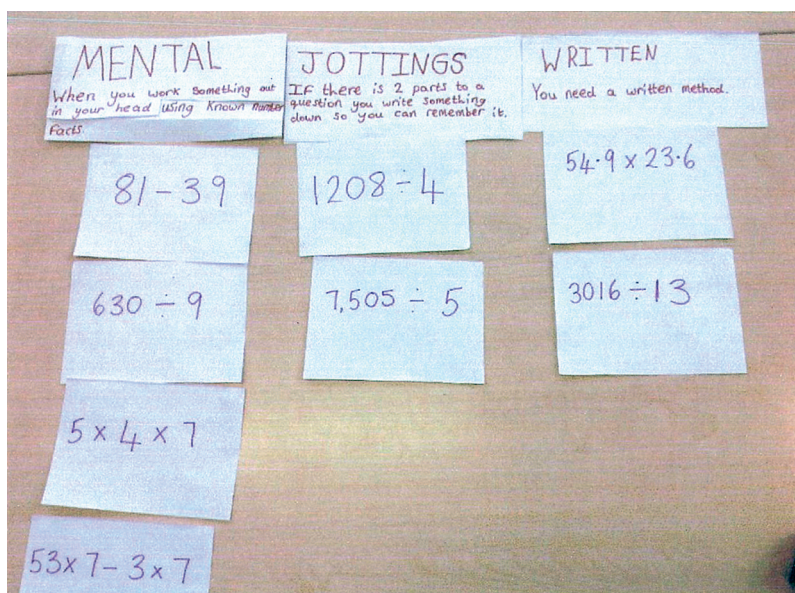 MENTAL
When you work something out
in your head using known number
Facts.
81 - 39
630 ÷ 9
5 × 4 × 7
53 × 7 - 3 × 7
JOTTINGS
IF there is 2 parts to a
question you write something
down so you can remember it.
1208 ÷ 4
7,505 ÷ 5
WRITTEN
You need a written method.
54·9 × 23·6
3016 ÷ 13